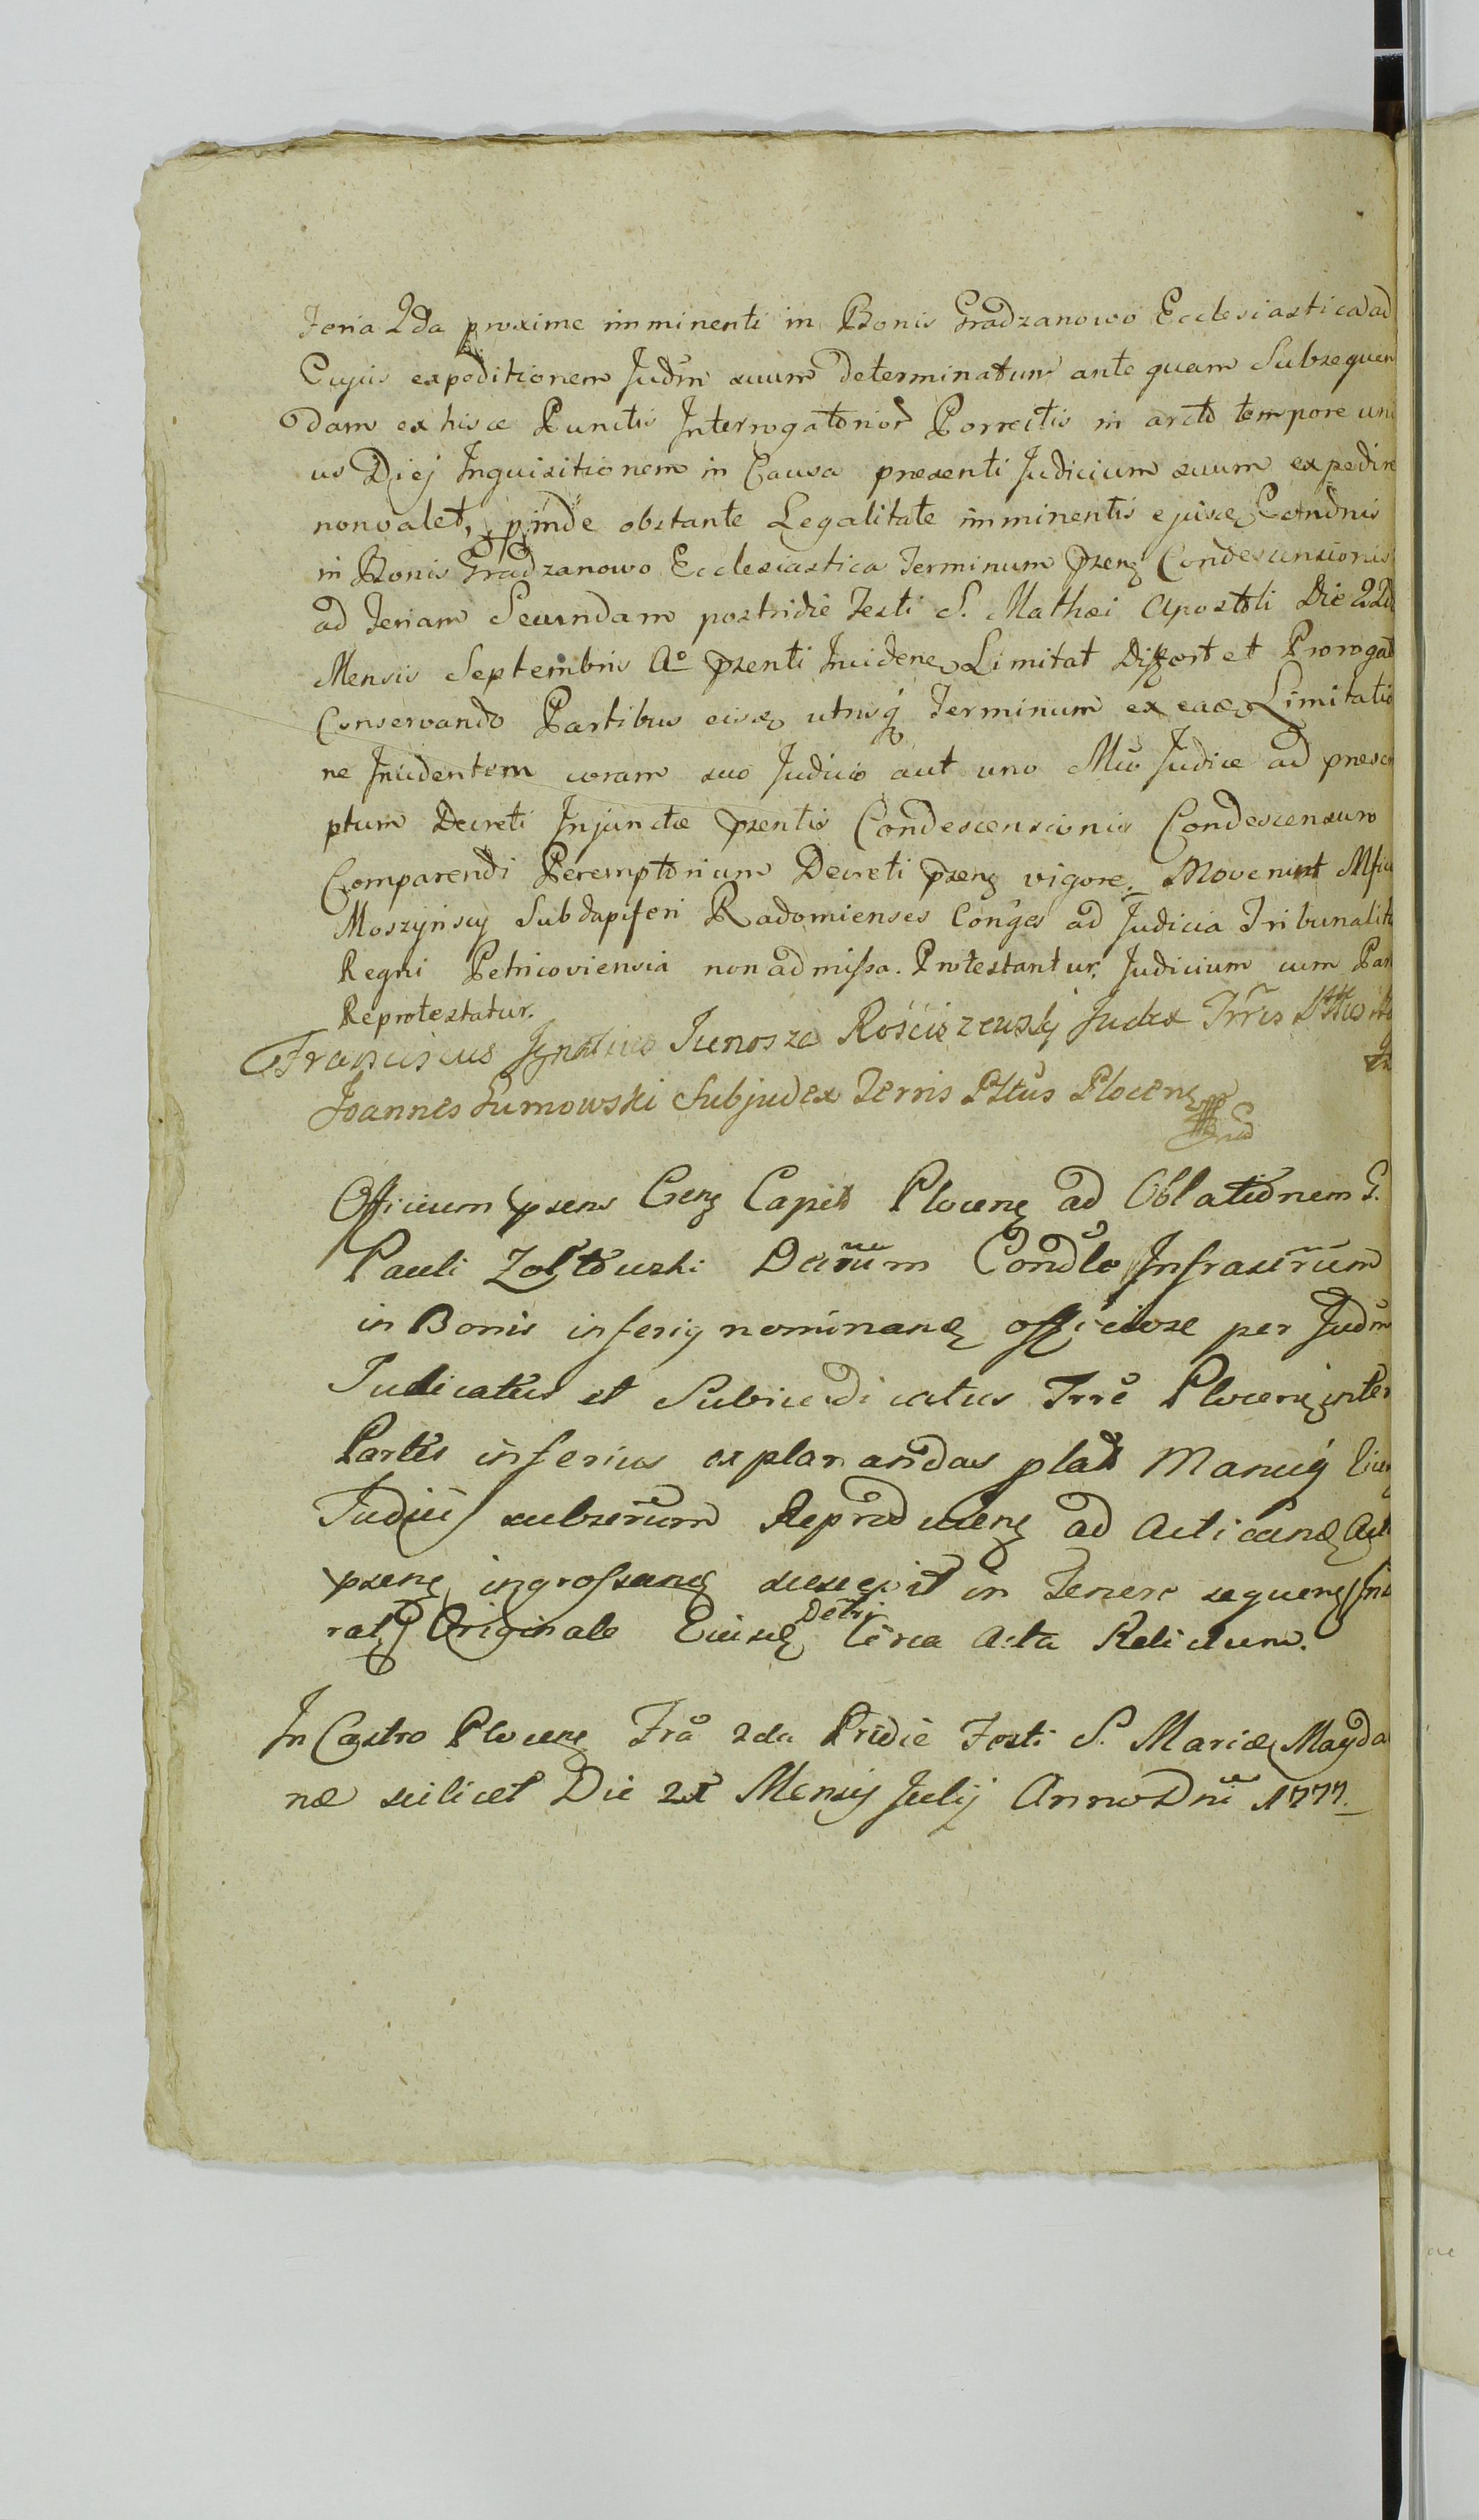 Feria 2da proxime imminenti in Bonis Gradzanowo Ecclesiastica ad
Cujus expeditionem Judm suum determinatum ante quam Subsequen
dam ex hisce Punctis Interrogatorior Porrectis in arcto tempore uni
us Diej Inquisitionem in Causa presenti Judicium suum expedire
non valet, pinde obstante Legalitate imminentis ejusq Condnis
in Bonis Gradzanowo Ecclesiastica Terminum psenz Condescensionis
ad Feriam Secundam postridie Festi S. Mathæi Apostoli Die 22d
Mensis Septembris Ao psenti Incidenz Limitat Differt et Prorogat
Conservando Partibus eisq utrisq Terminum ex eaq Limitatio
ne Incidentem coram suo Judicio aut uno Mco Judice ad prescri
ptum Decreti Injunctæ psentis Condescensionis Condescensuro
Comparendi Peremptorium Decreti psenz vigore. Moverunt Mfci
Moszynscy Subdapiferi Radomienses Conges ad Judicia Tribunalita
Regni Petricoviensia non admissa. Protestantur. Judicium cum Par
Reprotestatur.
Franciscus Ignatius Junosza Rościszewsky Judex Trris
Joannes Sumowski Subjudex Terris Pltus Plocenz
Officium psens Crenz Capit Plocenz ad Oblationem G.
Pauli Zołtowski Decrum Condlo Infrascrum
in Bonis inferiy nominanz officiose per Judm
Judicatus et Subiudicatus Trre Plocenz inter
Partes inferius explanandas plat Manuq
Judicij subscrum Reproducenz ad Acticanz Act
psenz ingrossanz suscepit in Tenere sequenz
ratq Originale Eiusq Detri Circa Acta Relictum.
In Castro Plocenz Fra 2da Pridie Festi S. Mariæ Magda
næ scilicet Die 21 Mensij Julij Anno Dni 1777.